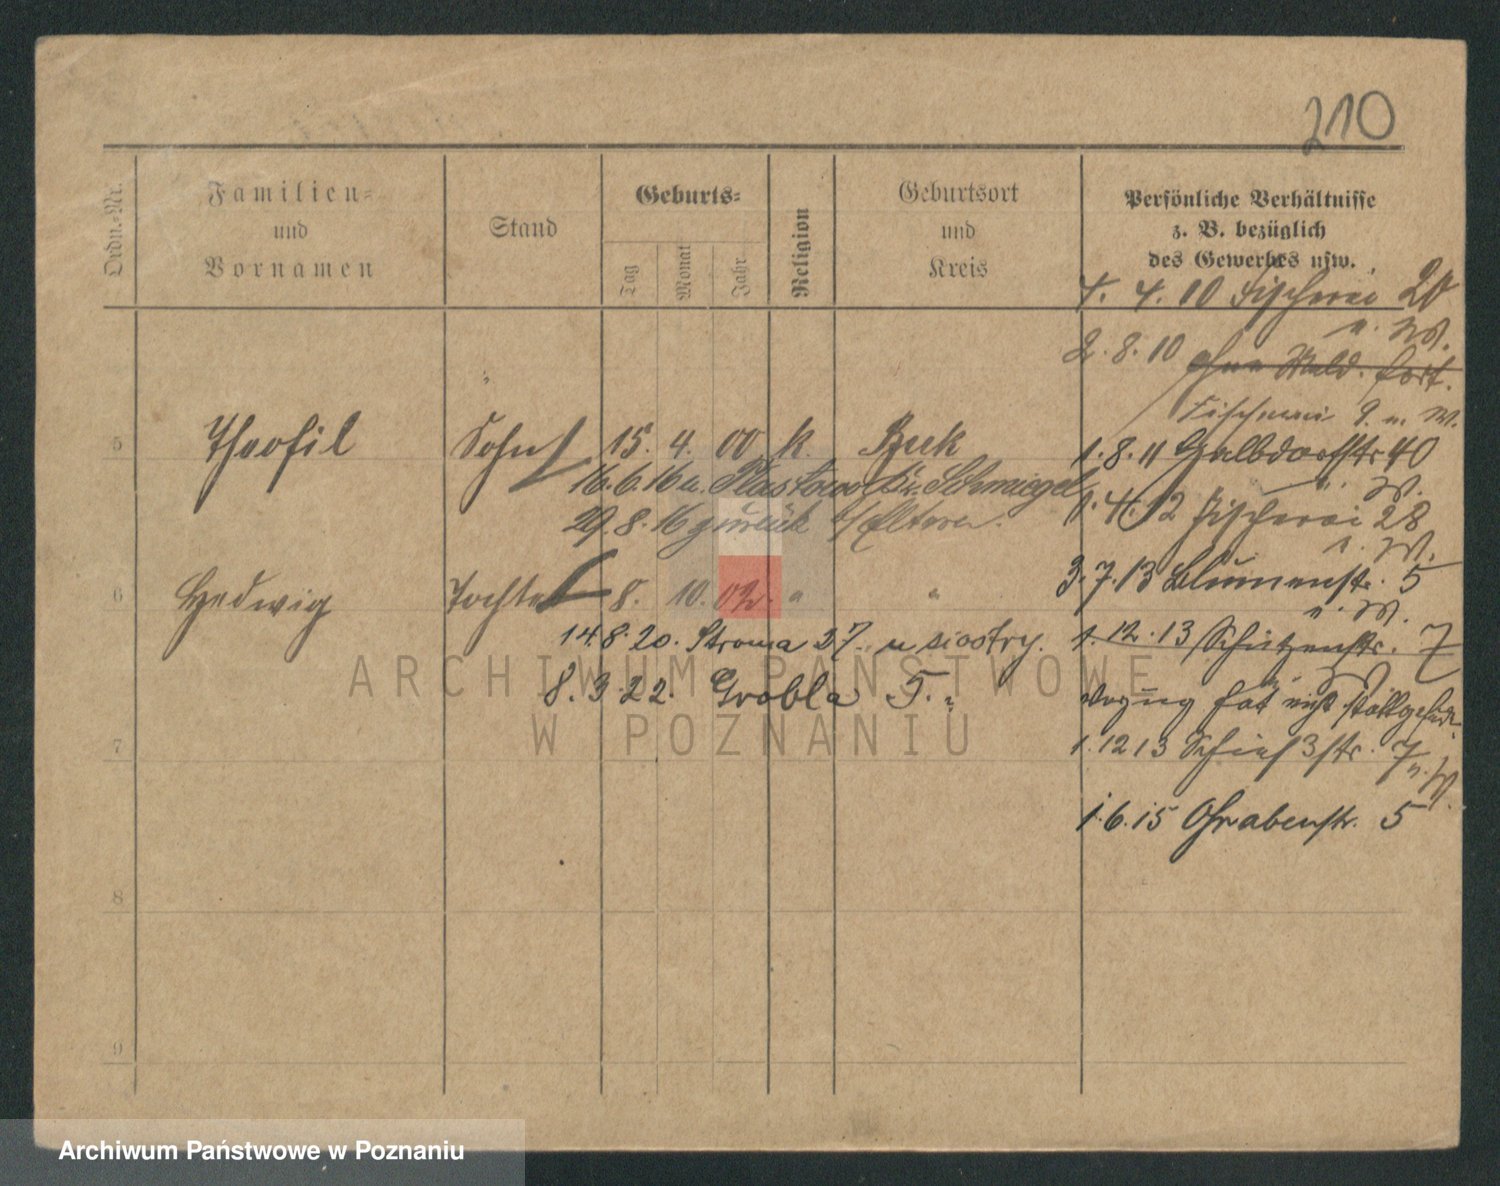 210
Ordn.-Nr.
Familien-
und
Vornamen
Stand
Geburts-
Tag
Monat
Jahr
Religion
Geburtsort
und
Kreis
Persönliche Verhältnisse
z. B. bezüglich
des Gewerbes usw.
4. 4. 10 Fischerei 20
u. W.
2. 8. 10 ohne Meld. fort.
Fischerei 9. u. W.
5 Theofil Sohn 15. 4. 00 k. Buk
1. 8. 11 Halbdorfstr 40
u. W.
16.6.16 n. Kr. Schmiegel
1. 4. 12 Fischerei 28
u. W.
29.8.16 zurück z/Eltern.
3. 7. 13 Blumenstr. 5
u. W.
6 Hedwig Tochter 8. 10. 02. " "
14.8.20. Stroma 27. u siostry.
1. 12. 13 Schützenstr. 7
u. W.
8. 3. 22. Grobla 5.
Umzug hat nicht stattgefund.
7
1. 12 13 Schießstr. 7
u. W.
1. 6. 15 Grabenstr. 5
8
9
ARCHIWUM PAŃSTWOWE
W POZNANIU
Archiwum Państwowe w Poznaniu